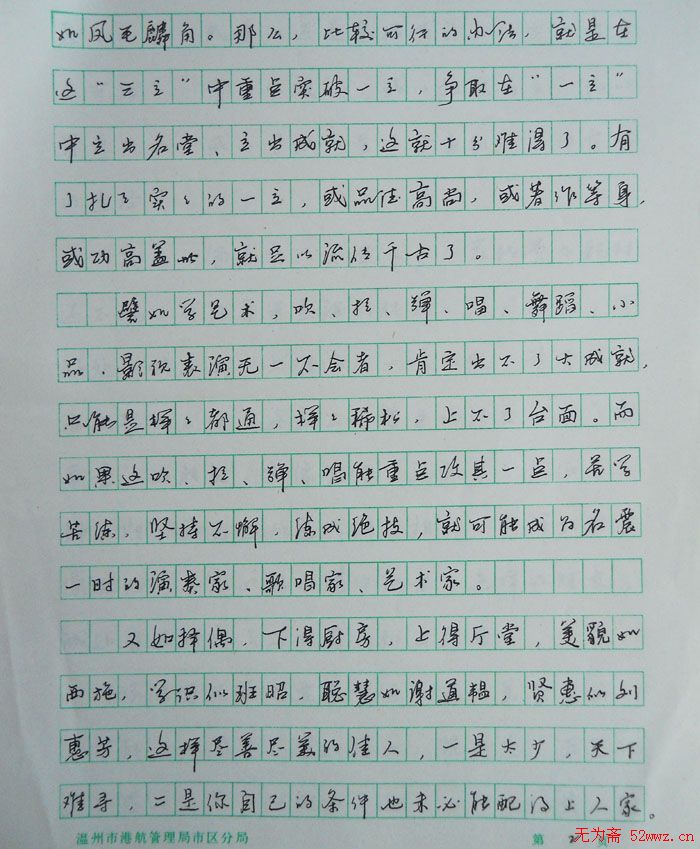 如凤毛麟角。那么，比较可行的办法，就是在
这“三立”中重点突破一立，争取在“一立”
中立出名堂、立出成就，这就十分难得了。有
了扎扎实实的一立，或品德高尚，或著作等身，
或功高盖世，就足以流传千古了。
譬如学艺术，吹、拉、弹、唱、舞蹈、小
品、影视表演无一不会者，肯定出不了大成就，
只能是样样都通，样样稀松，上不了台面。而
如果这吹、拉、弹、唱能重点攻其一点，苦学
苦练，坚持不懈，练成绝技，就可能成为名震
一时的演奏家、歌唱家、艺术家。
又如择偶，下得厨房，上得厅堂，美貌如
西施，学识似班昭，聪慧如谢道韫，贤惠似刘
惠芳，这样尽善尽美的佳人，一是太少，天下
难寻，二是你自己的条件也未必能配得上人家。
温州市港航管理局市区分局 第 2 页
无为斋 52wwz.cn